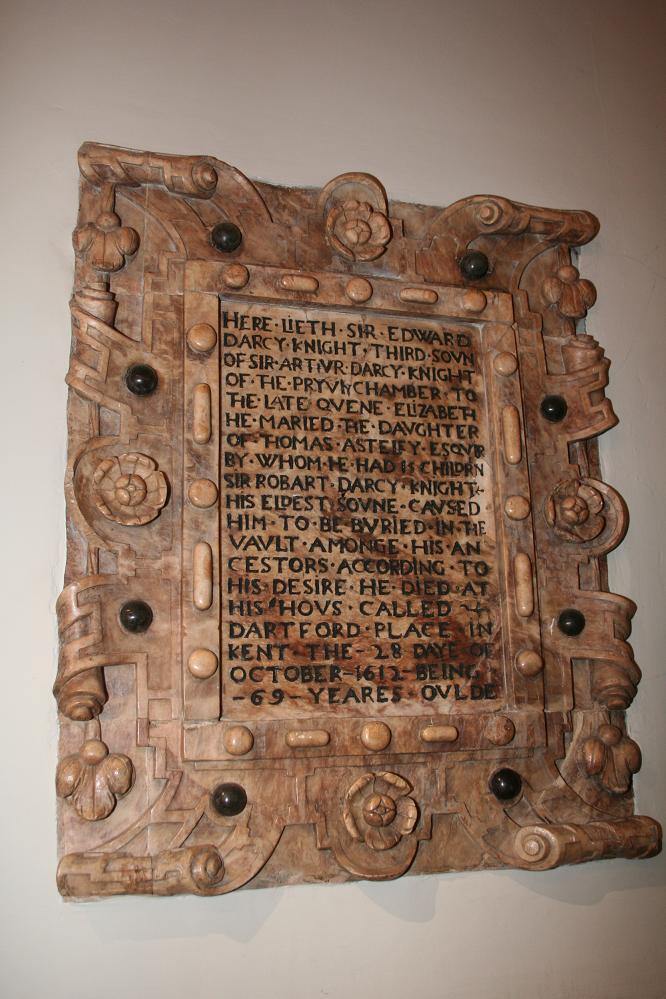 HERE·LIETH·SIR·EDWARD
DARCY·KNIGHT·THIRD·SOVN
OF·SIR·ARTHVR·DARCY·KNIGHT
OF·THE·PRYVIY CHAMBER·TO
THE·LATE·QVENE·ELIZABETH
HE·MARIED·THE·DAVGHTER
OF·THOMAS·ASTELEY·ESQVIR
BY·WHOM·HE·HAD 15 CHILDRN
SIR ROBART·DARCY·KNIGHT
HIS ELDEST SOVNE·CAVSED
HIM·TO·BE·BVRIED·IN·THE
VAVLT·AMONGE·HIS·AN
CESTORS·ACCORDING·TO
HIS·DESIRE·HE·DIED·AT
HIS·HOVS·CALLED
DARTFORD·PLACE·IN
KENT·THE-28 DAYE OF
OCTOBER-1612-BEING
-69-YEARES·OVLDE